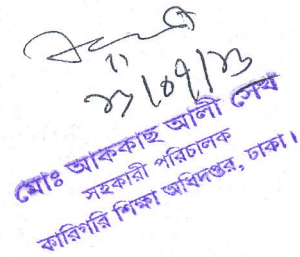 ২৭/০৭/২৩
মোঃ আককাছ আলী সেখ
সহকারী পরিচালক
কারিগরি শিক্ষা অধিদপ্তর, ঢাকা।